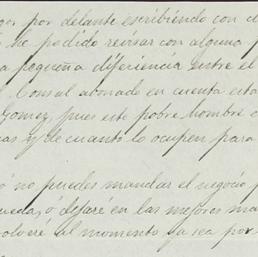 por delante escribiendo con
he podido revisar con alguna
pequeña diferencia entre el
Consul abonado en cuenta esta
Gomez, pues este pobre hombre
y de cuanto lo ocupen para
no puedes mandar el negocio
ó dejaré en las mejores
volveré al momento ya sea por